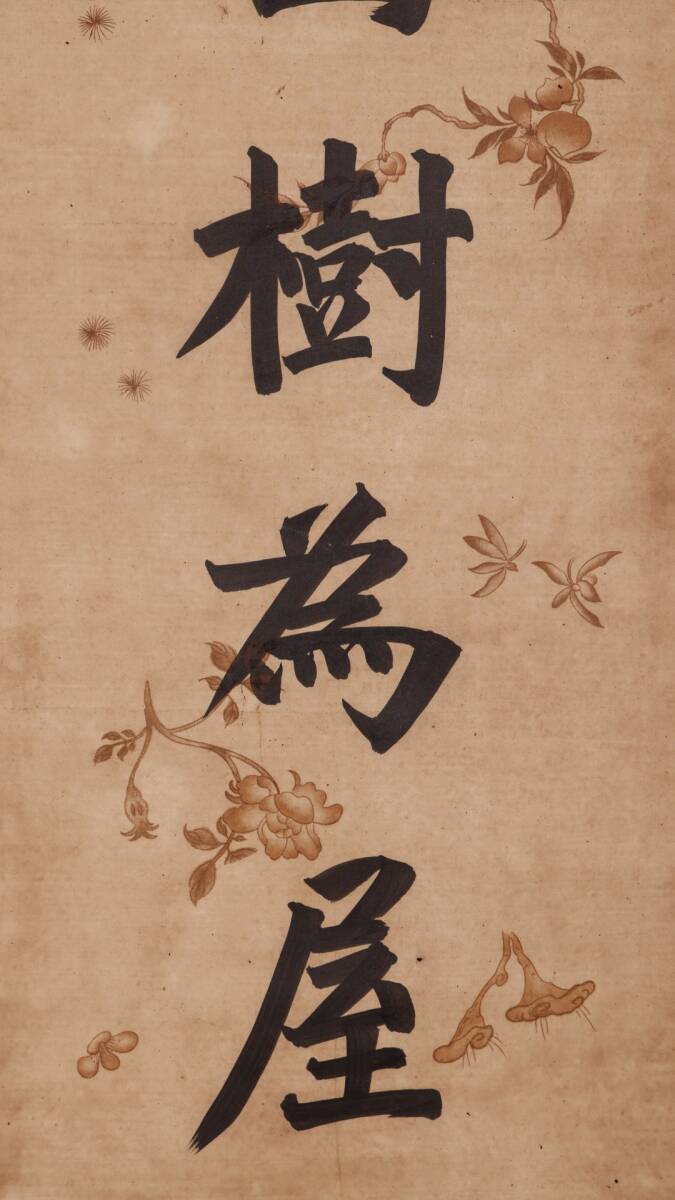 樹為屋